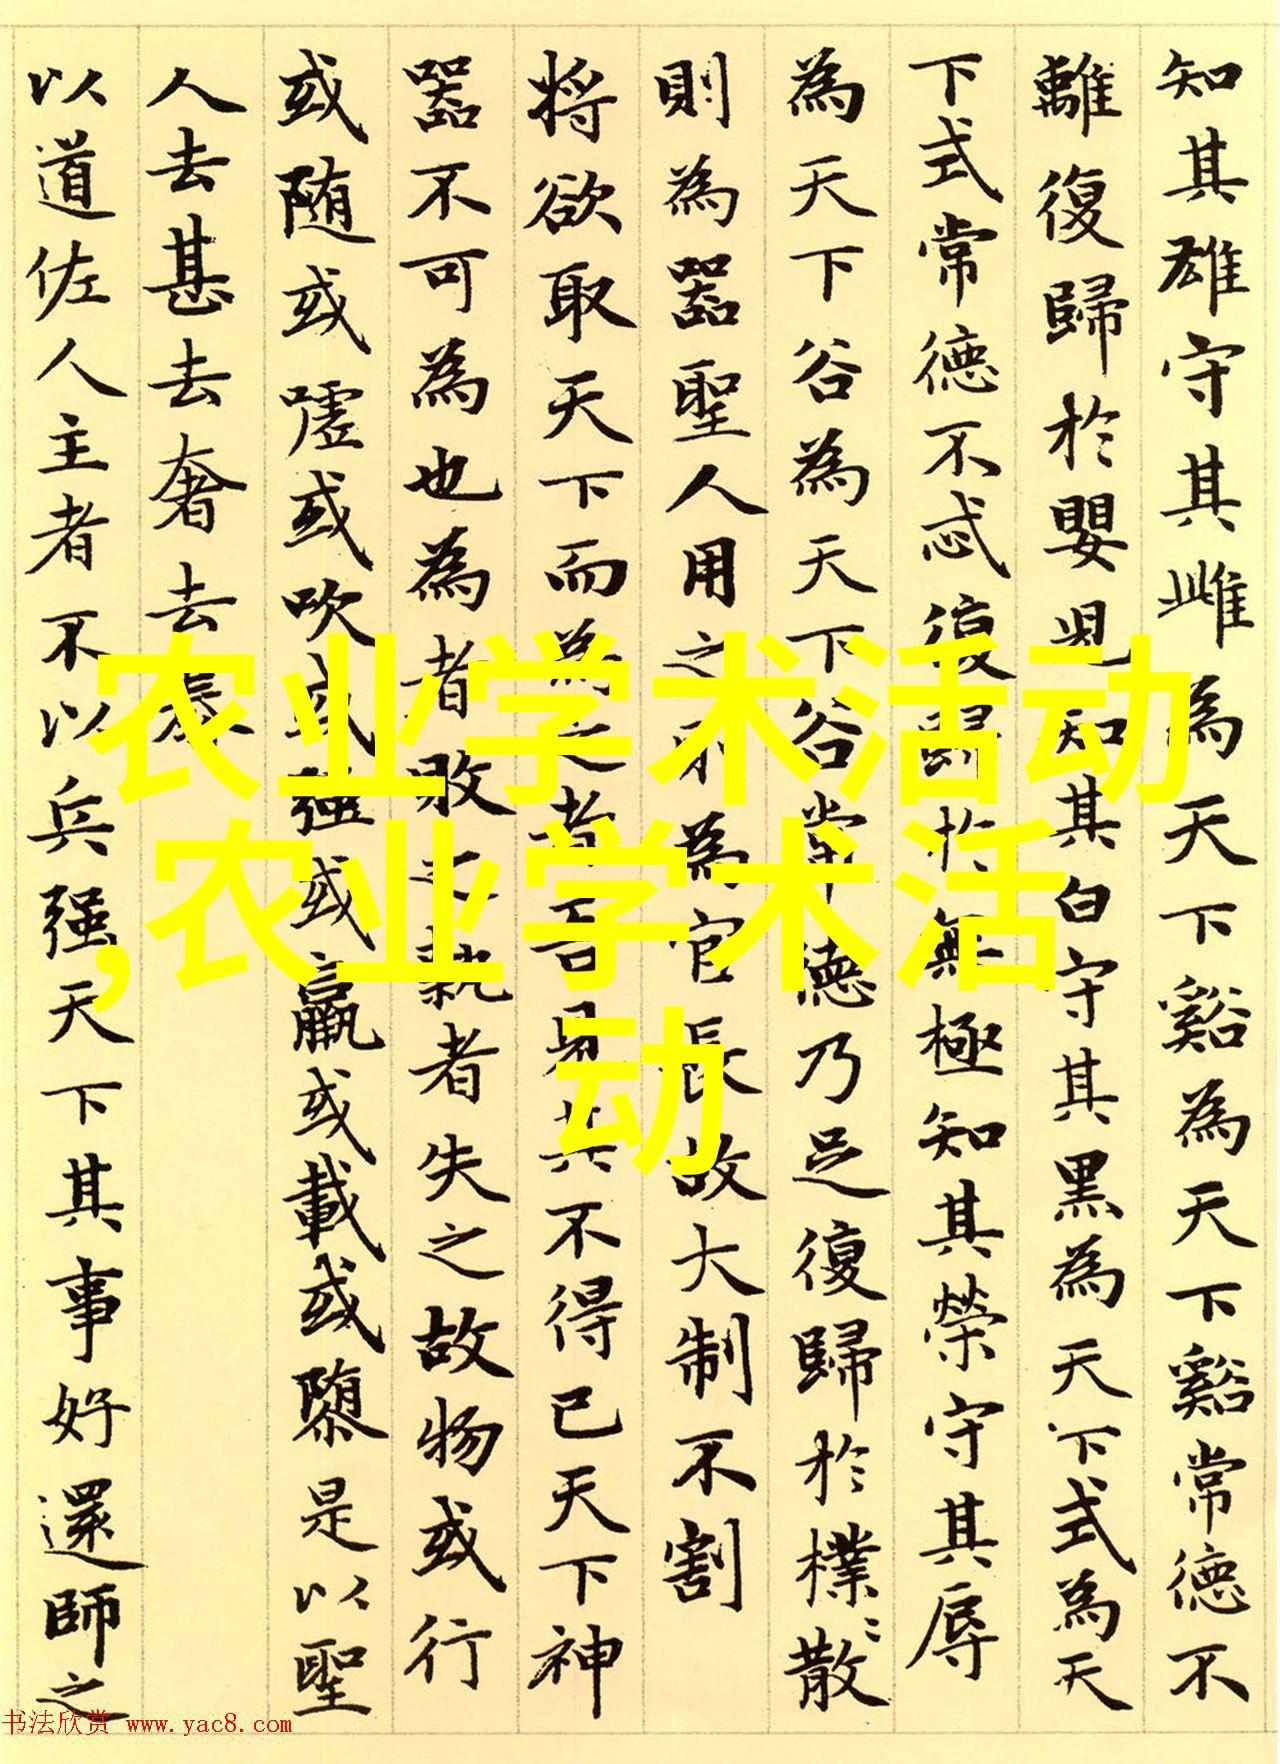 知其雄守其雌為天下谿為天下谿常德不
離復歸於嬰児知其白守其黑為天下式為天
下式常德不忒復歸於無極知其榮守其辱
為天下谷為天下谷常德乃足復歸於樸樸散
則為器聖人用之則為官長故大制不割
将欲取天下而為之者吾見其不得已天下神
器不可為也為者敗之執者失之故物或行
或随或嘘或吹或强或羸或載或隳是以聖
人去甚去奢去泰
以道佐人主者不以兵强天下其事好還師之
农业学术活动
,农业学术活
动
书法欣赏 www.yac8.com